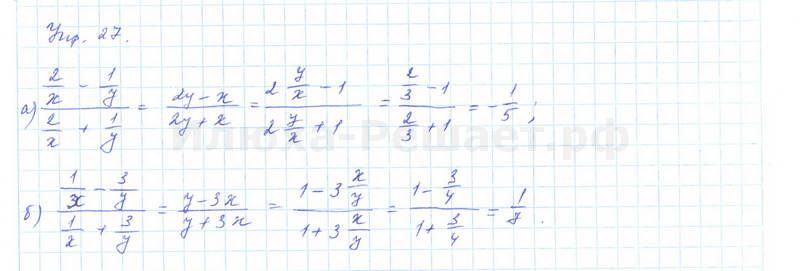 Упр. 27.
а) (2/x - 1/y)/(2/x + 1/y) = (2y - x)/(2y + x) = (2 y/x - 1)/(2 y/x + 1) = (2/3 - 1)/(2/3 + 1) = - 1/5 ;
Илюха-Решает.рф
б) (1/x - 3/y)/(1/x + 3/y) = (y - 3x)/(y + 3x) = (1 - 3 x/y)/(1 + 3 x/y) = (1 - 3/4)/(1 + 3/4) = 1/7 .